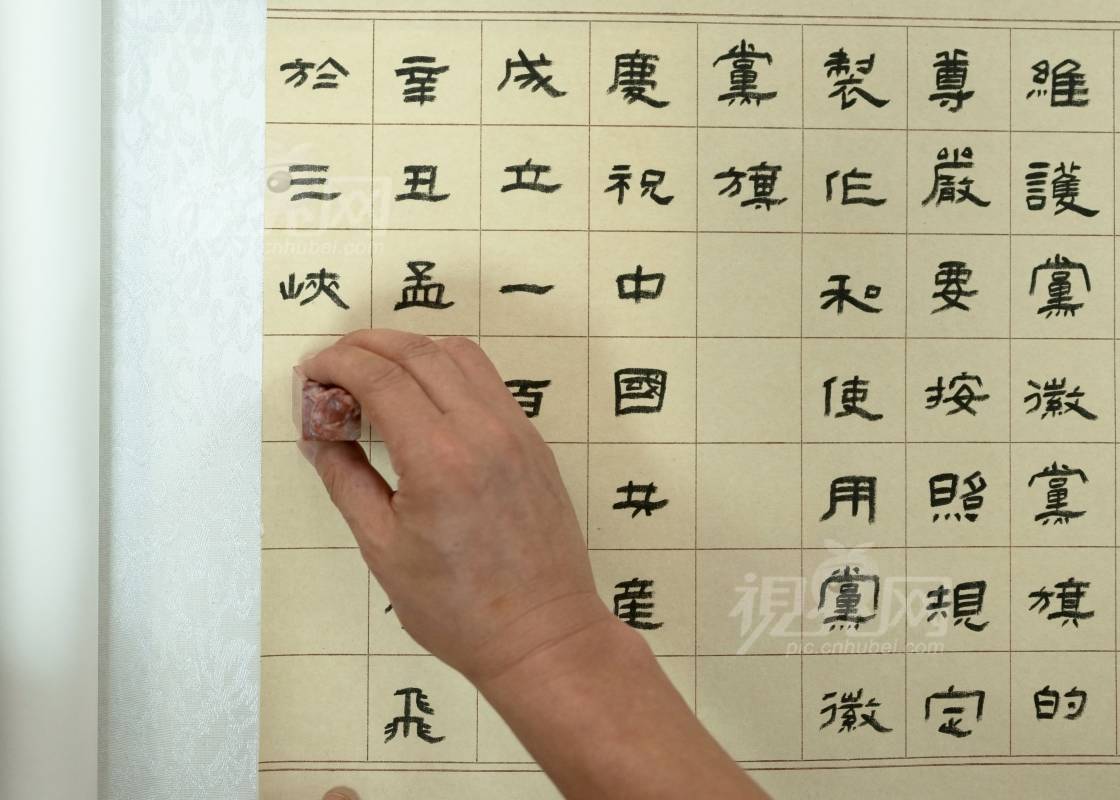 維護黨徽黨旗的
尊嚴要按照規定
製作和使用黨徽
黨旗
慶祝中國共産
成立一百
辛丑孟
飛
於三峽
視界网
pic.cnhubei.com